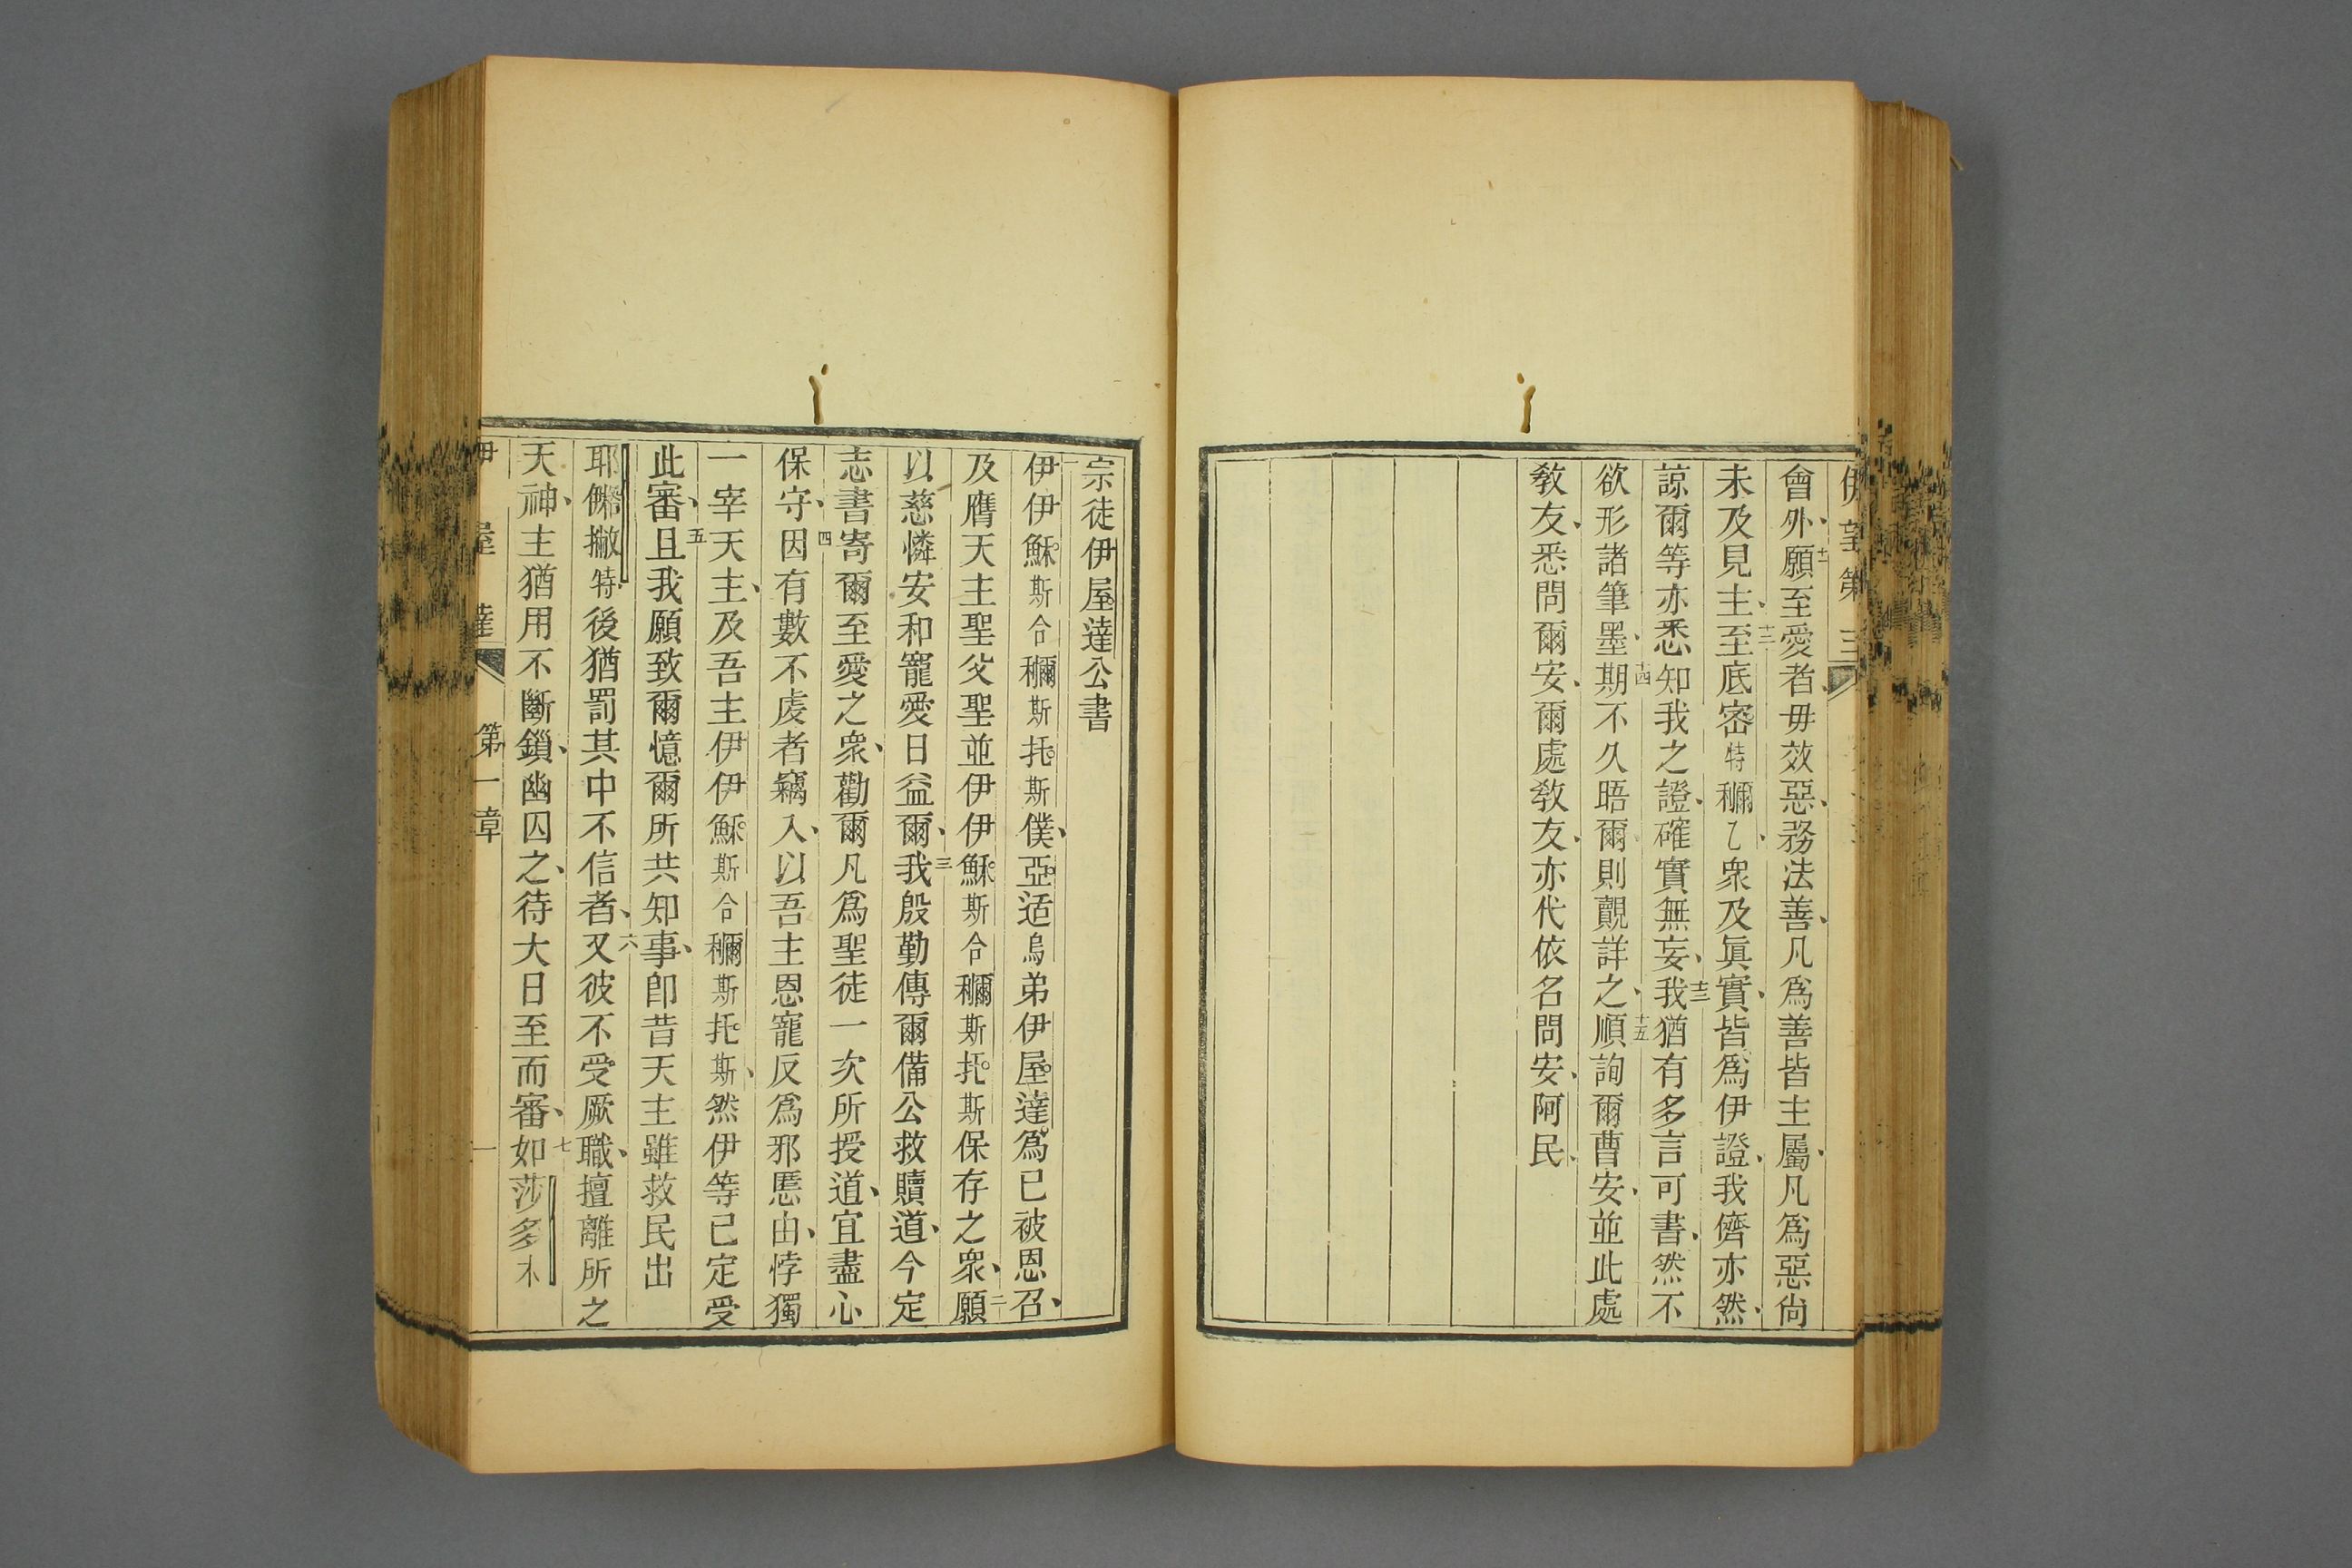 會外、十一願至愛者、毋效惡、務法善、凡爲善皆主屬、凡爲惡尙
未及見主、十二至底宻特穪乙、衆及眞實、皆爲伊證、我儕亦然、
諒爾等亦悉知我之證、確實無妄、十三我猶有多言可書、然不
欲形諸筆墨、十四期不久晤爾則覿詳之、十五順詢爾曹安、並此處
敎友、悉問爾安、爾處敎友、亦代依名問安、阿民、
宗徒伊屋達公書
一伊伊穌斯合穪斯托斯僕、亞适烏弟伊屋達、爲已被恩召、
及膺天主聖父聖並伊伊穌斯合穪斯托斯保存之衆、二願
以慈憐安和寵愛日益爾、三我殷勤傳爾備公救贖道、今定
志書寄爾至愛之衆、勸爾凡爲聖徒一次所授道、宜盡心
保守、四因有數不虔者竊入、以吾主恩寵反爲邪慝由、悖獨
一宰天主、及吾主伊伊穌斯合穪斯托斯、然伊等已定受
此審、五且我願致爾憶爾所共知事、卽昔天主雖救民出
耶撇特、後猶罰其中不信者、六又彼不受厥職、擅離所之
天神、主猶用不斷鎖、幽囚之、待大日至而審、七如莎多木
伊屋達 第一章 一